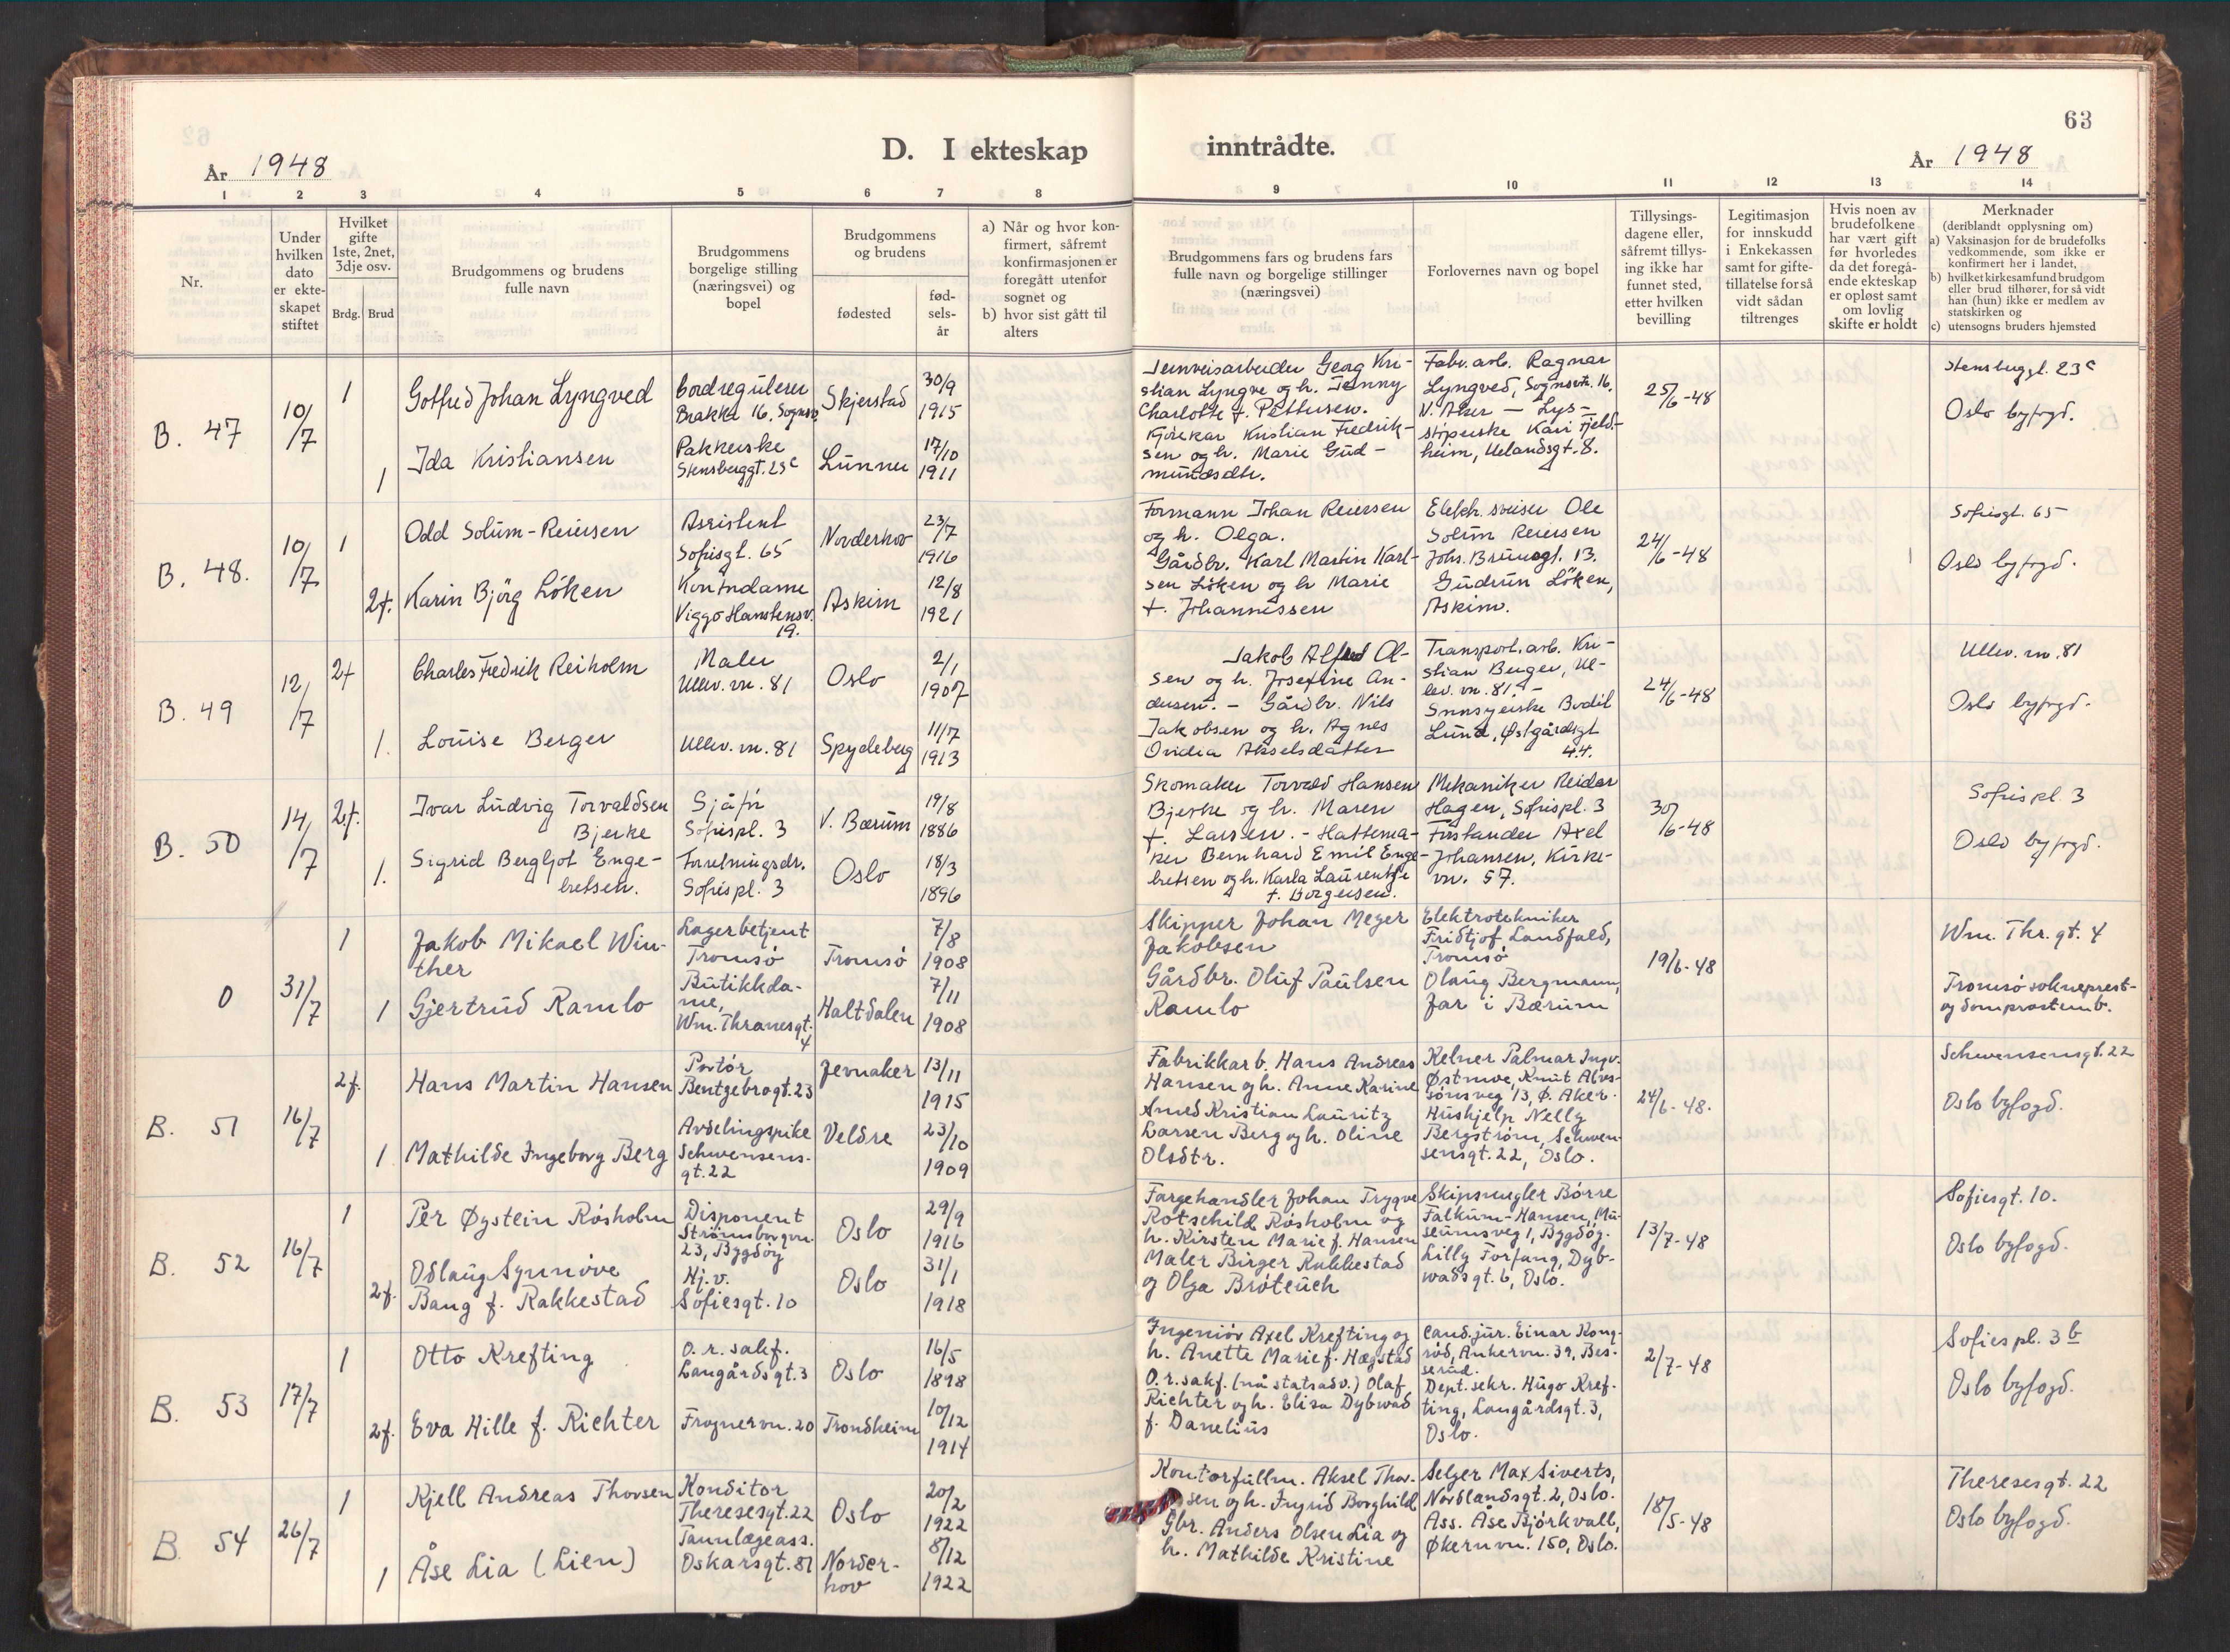 63
D. I ekteskap inntrådte.
År 1948
År 1948
1 2 3 4 5 6 7 8 9 10 11 12 13 14
Nr.
Under
hvilken
dato
er ekte-
skapet
stiftet
Hvilket
gifte
1ste, 2net,
3dje osv.
Brdg. Brud
Brudgommens og brudens
fulle navn
Brudgommens
borgelige stilling
(næringsvei) og
bopel
Brudgommens
og brudens
fødested
fød-
sels-
år
a) Når og hvor kon-
firmert, såfremt
konfirmasjonen er
foregått utenfor
sognet og
b) hvor sist gått til
alters
Brudgommens fars og brudens fars
fulle navn og borgelige stillinger
(næringsvei)
Forlovernes navn og bopel
Tillysings-
dagene eller,
såfremt tillys-
ing ikke har
funnet sted,
etter hvilken
bevilling
Legitimasjon
for innskudd
i Enkekassen
samt for gifte-
tillatelse for så
vidt sådan
tiltrenges
Hvis noen av
brudefolkene
har vært gift
før hvorledes
da det foregå-
ende ekteskap
er opløst samt
om lovlig
skifte er holdt
Merknader
(deriblandt opplysning om)
a) Vaksinasjon for de brudefolks
vedkommende, som ikke er
konfirmert her i landet,
b) hvilket kirkesamfund brudgom
eller brud tilhører, for så vidt
han (hun) ikke er medlem av
statskirken og
c) utensogns bruders hjemsted
B. 47
10/7
1
Gotfred Johan Lyngved
Bordregulerer
Brakke 16, Sognsv.
Skjerstad
30/9
1915
1
Ida Kristiansen
Pakkerske
Stensberggt. 23c
Lunner
17/10
1911
Jernveisarbeider Georg Kri-
stian Lyngve og h. Jenny
Charlotte f. Pettersen.
Kjörekar Kristian Fredrik-
sen og h. Marie Gud-
mundsdtr.
Fabr. arb. Ragnar
Lyngved, Sognsvn. 16.
V. Aker — Lys-
stöperske Kari Fjeld-
heim, Uelandsgt. 8.
25/6-48
Stensbergg. 23c
Oslo byfogd.
B. 48.
10/7
1
Odd Solum-Reiersen
Assistent
Sofiesgt. 65
Norderhov
23/7
1916
2f.
Karin Björg Löken
Kontordame
Viggo Hanstensv.
19.
Askim
12/8
1921
Formann Johan Reiersen
og h. Olga.
Gårdbr. Karl Martin Karl-
sen Löken og h Marie
f. Johannessen
Elektr. sveiser Ole
Solum Reiersen
Johs. Brunsgt. 13.
Gudrun Löken,
Askim.
24/6-48
Sofiesgt. 65
Oslo byfogd.
B. 49
12/7
2f
Charles Fredrik Reiholm
Maler
Ullev. vn. 81
Oslo
2/1
1907
1.
Louise Berger
Ullev. vn. 81
Spydeberg
11/7
1913
Jakob Alfred Ol-
sen og h. Josefine An-
dersen. - Gårdbr. Nils
Jakobsen og h. Agnes
Ovidia Akselsdatter
Transport. arb. Kri-
stian Berger, Ul-
lev. vn. 81. -
Snnsyerske Bodil
Lund, Østgårdsgt
44.
24/6-48
Ullev. vn. 81
Oslo byfogd.
B. 50
14/7
2f.
Ivar Ludvig Torvaldsen
Bjerke
Sjåfør
Sofiespl. 3
V. Bærum
19/8
1886
1.
Sigrid Bergljot Enge-
bretsen.
Forretningsdr.
Sofiespl. 3
Oslo
18/3
1896
Skomaker Torvald Hansen
Bjerke og h. Maren
f. Larsen. - Hattema-
ker Bernhard Emil Enge-
bretsen og h. Karla Laurentze
f. Borgersen.
Mekaniker Reidar
Hagen, Sofiespl. 3
Forstander Axel
Johansen, Kirke-
vn. 57.
30/6-48
Sofiespl. 3
Oslo byfogd.
0
31/7
1
Jakob Mikael Win-
ther
Lagerbetjent
Tromsö
Tromsö
7/8
1908
1
Gjertrud Ramlo
Butikkda-
me,
Wm. Thranesgt.
4
Haltdalen
7/11
1908
Skipper Johan Meyer
Jakobsen
Gårdbr. Oluf Paulsen
Ramlo
Elektrotekniker
Fridtjof Landfald,
Tromsö
Olaug Bergmann,
Jar i Bærum
19/6-48
Wm. Thr. gt. 4
Tromsö sokneprest-
og domprostemb.
B. 51
16/7
2f.
Hans Martin Hansen
Portör
Bentzebrogt. 23
Jevnaker
13/11
1915
1
Mathilde Ingeborg Berg
Avdelingspike
Schwensens-
gt. 22
Veldre
23/10
1909
Fabrikkarb. Hans Andreas
Hansen og h. Anne Karine
Smed Kristian Lauritz
Larsen Berg og h. Oline
Olsdtr.
Kelner Palmar Ingv.
Østmoe, Knut Alvs-
sönsveg 13, Ø. Aker.
Hushjelp Nelly
Bergström, Schwen-
sensgt. 22, Oslo.
24/6-48.
Schwensensgt. 22
Oslo byfogd.
B. 52
16/7
1
Per Øystein Rösholm
Disponent
Strömsborgvn.
23, Bygdöy
Oslo
29/9
1916
2f.
Odlaug Synnöve
Bang f. Rakkestad
Hj. v.
Sofiesgt. 10
Oslo
31/1
1918
Fargehandler Johan Trygve
Rotschild Rösholm og
h. Kirsten Marie f. Hansen
Maler Birger Rakkestad
og Olga Bröteuch
Skipsmegler Börre
Falkum-Hansen, Mu-
seumsveg 1, Bygdöy.
Lilly Forfang, Dyb-
wadsgt. 6, Oslo.
13/7-48
Sofiesgt. 10.
Oslo byfogd.
B. 53
17/7
1
Otto Krefting
O. r. sakf.
Langårdsgt. 3
Oslo
16/5
1898
2f.
Eva Hille f. Richter
Frognervn. 20
Trondheim
10/12
1914
Ingeniör Axel Krefting og
h. Anette Marie f. Hægstad
O. r. sakf. (nå statsadv.) Olaf
Richter og h. Elisa Dybwad
f. Danelius
Cand. jur. Einar Kong-
röd, Ankervn. 39, Bes-
serud.
Dept. sekr. Hugo Kref-
ting, Langårdsgt. 3,
Oslo.
2/7-48
Sofies pl. 3 b
Oslo byfogd.
B. 54
26/7
1
Kjell Andreas Thorsen
Konditor
Theresesgt. 22
Oslo
20/2
1922
1
Åse Lia (Lien)
Tannlægeass.
Oskarsgt. 81
Norder-
hov
8/12
1922
Kontorfullm. Aksel Thor-
sen og h. Ingrid Borghild
Gbr. Anders Olsen Lia og
h. Mathilde Kristine
Selger Max Siverts,
Nordlandsgt. 2, Oslo.
Ass. Åse Björkvall,
Økernvn. 150, Oslo.
18/5-48
Theresesgt. 22
Oslo byfogd.